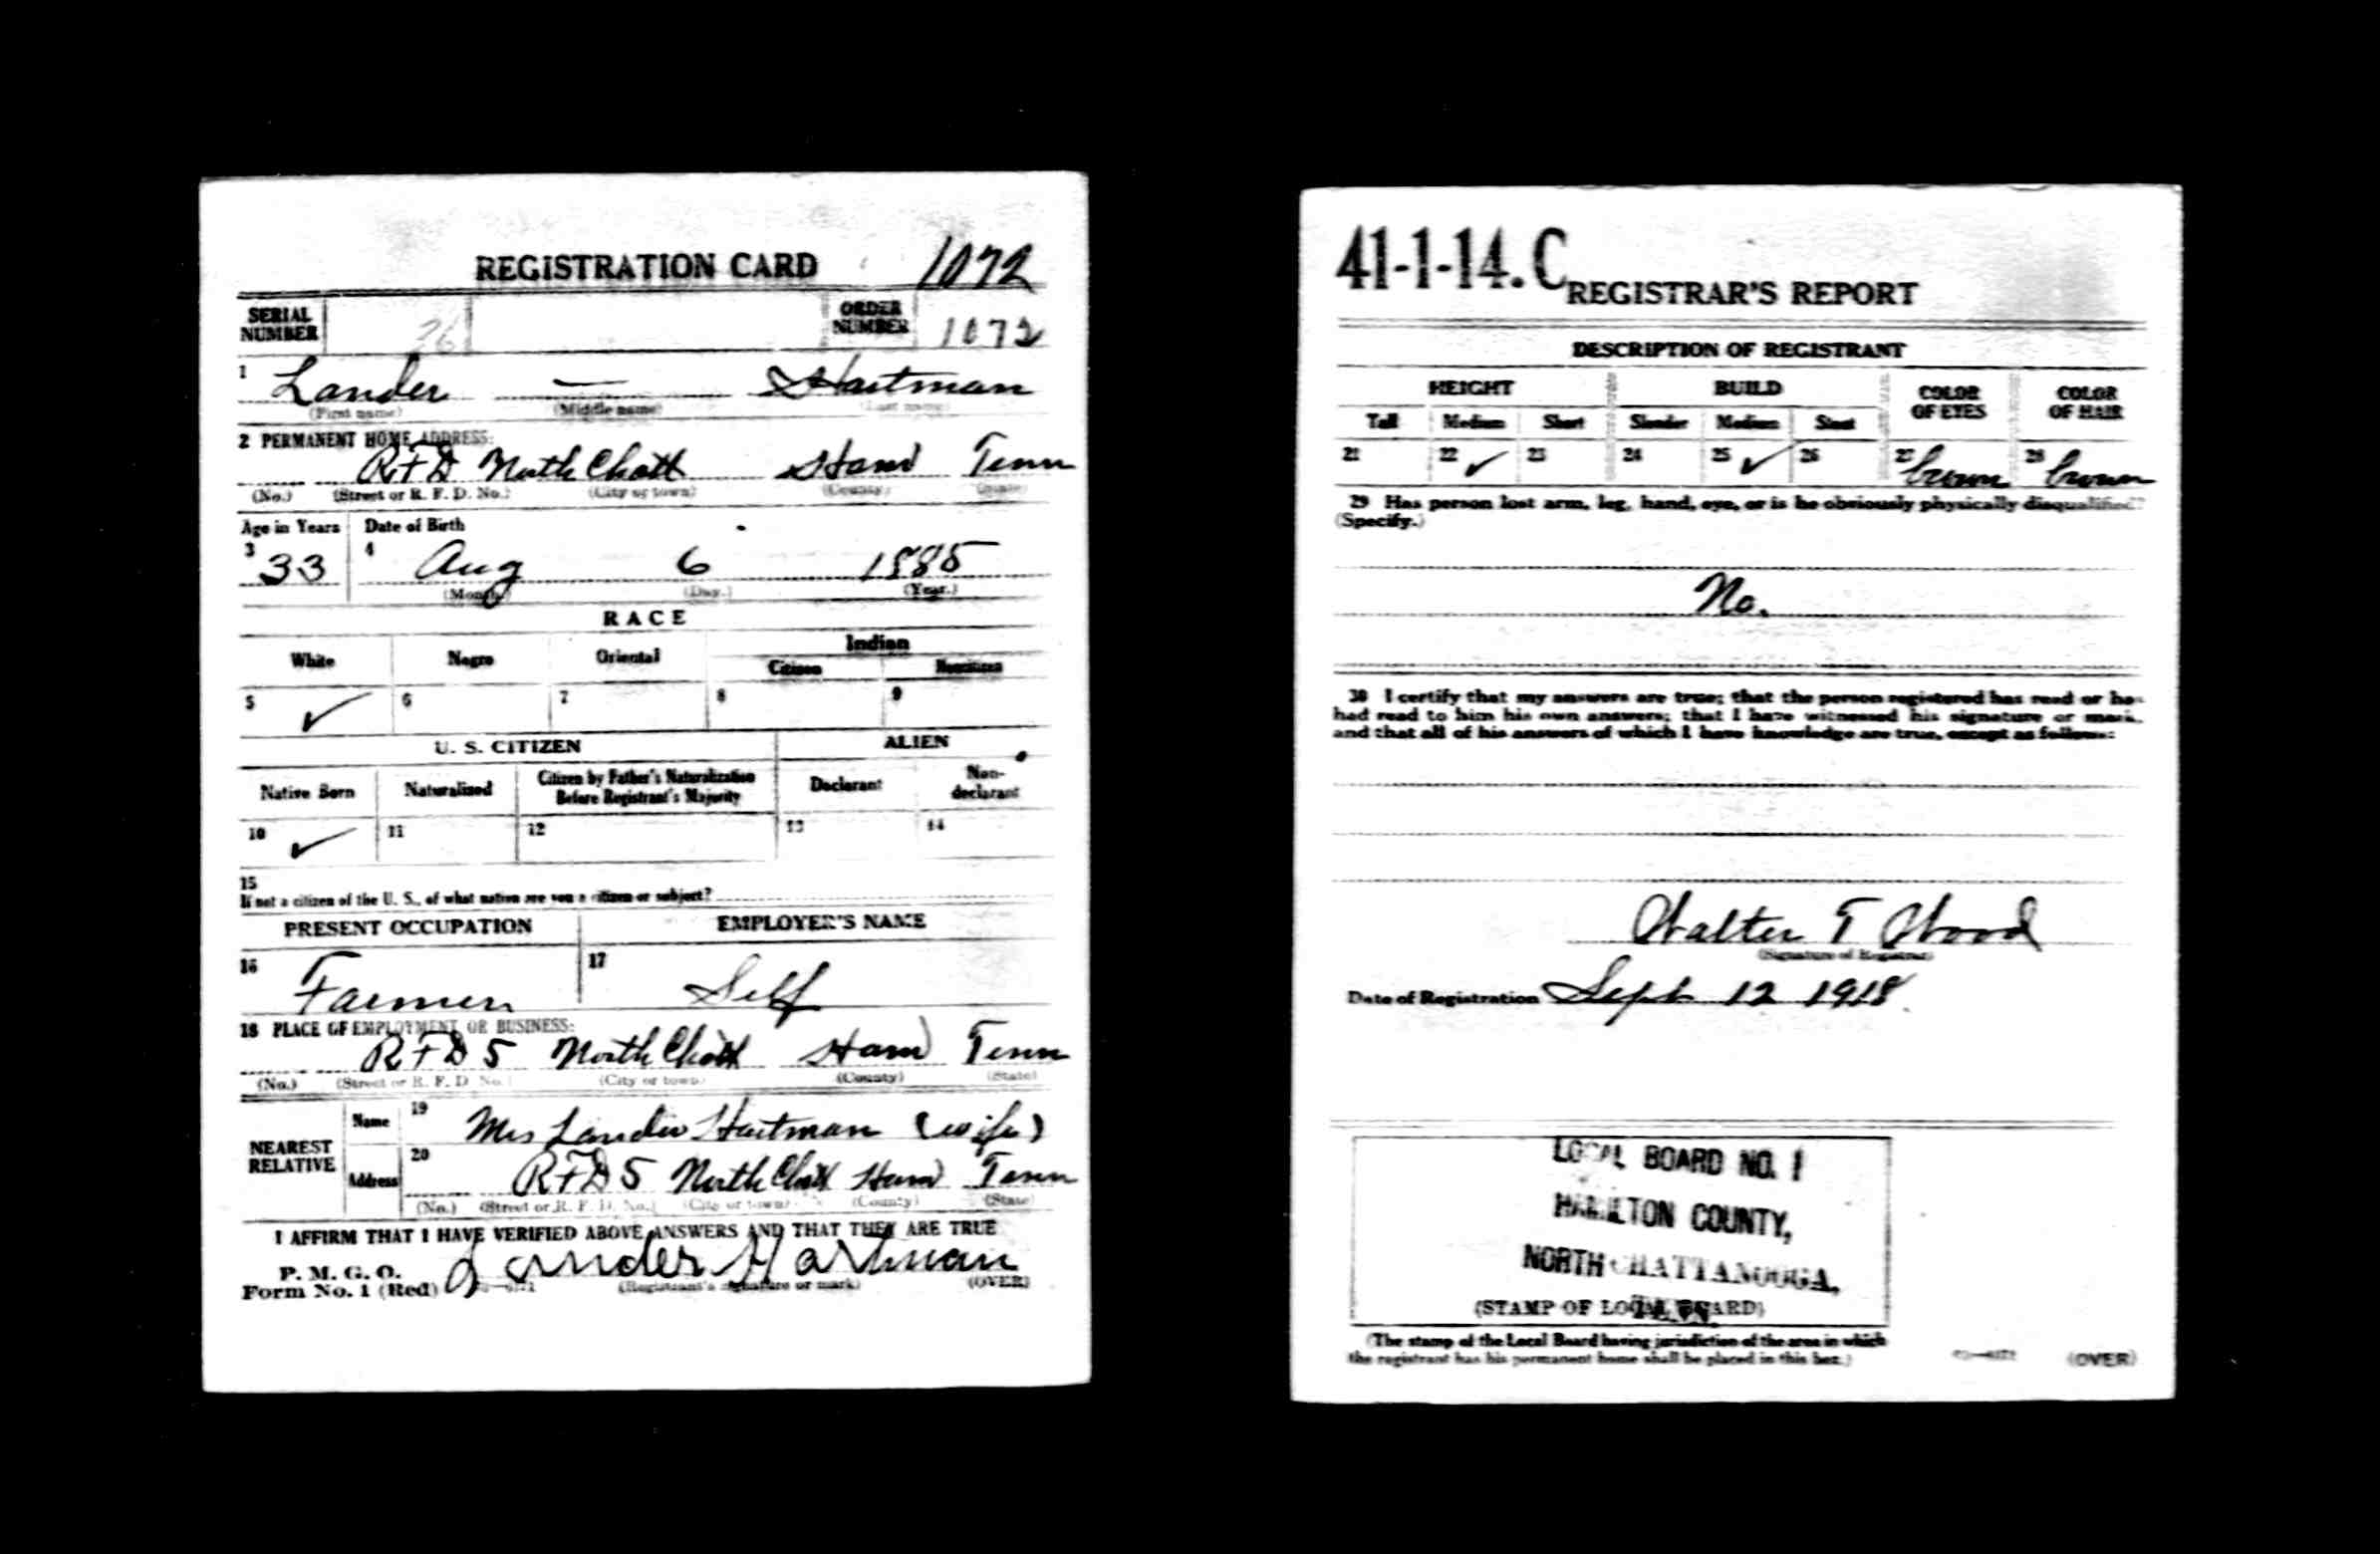 REGISTRATION CARD 1072
SERIAL NUMBER 26 ORDER NUMBER 1072
1 Lander — Hartman
(First name) (Middle name) (Last name)
2 PERMANENT HOME ADDRESS:
RFD North Chatt Ham Tenn
(No.) (Street or R. F. D. No.) (City or town) (County) (State)
Age in Years Date of Birth
3 33 4 Aug 6 1885
(Month.) (Day.) (Year.)
RACE
White Negro Oriental Indian
Citizen Noncitizen
5 ✓ 6 7 8 9
U. S. CITIZEN ALIEN
Native Born Naturalized Citizen by Father's Naturalization Before Registrant's Majority Declarant Non-declarant
10 ✓ 11 12 13 14
15
If not a citizen of the U. S., of what nation are you a citizen or subject?
PRESENT OCCUPATION EMPLOYER'S NAME
16 Farmer 17 Self
18 PLACE OF EMPLOYMENT OR BUSINESS:
RFD 5 North Chatt Ham Tenn
(No.) (Street or R. F. D. No.) (City or town) (County) (State)
NEAREST RELATIVE
Name 19 Mrs Lander Hartman (wife)
Address 20 RFD 5 North Chatt Ham Tenn
(No.) (Street or R. F. D. No.) (City or town) (County) (State)
I AFFIRM THAT I HAVE VERIFIED ABOVE ANSWERS AND THAT THEY ARE TRUE
P. M. G. O.
Form No. 1 (Red) Lander Hartman
(Registrant's signature or mark) (OVER)
41-1-14. C
REGISTRAR'S REPORT
DESCRIPTION OF REGISTRANT
HEIGHT BUILD COLOR OF EYES COLOR OF HAIR
Tall Medium Short Slender Medium Stout
21 22 ✓ 23 24 25 ✓ 26 27 brown 28 brown
29 Has person lost arm, leg, hand, eye, or is he obviously physically disqualified?
(Specify.)
No.
30 I certify that my answers are true; that the person registered has read or has
had read to him his own answers; that I have witnessed his signature or mark,
and that all of his answers of which I have knowledge are true, except as follows:
Walter T Wood
(Signature of Registrar)
Date of Registration Sept 12 1918
LOCAL BOARD NO. 1
HAMILTON COUNTY,
NORTH CHATTANOOGA,
TENN.
(STAMP OF LOCAL BOARD)
(The stamp of the Local Board having jurisdiction of the area in which
the registrant has his permanent home shall be placed in this box.)
(OVER)